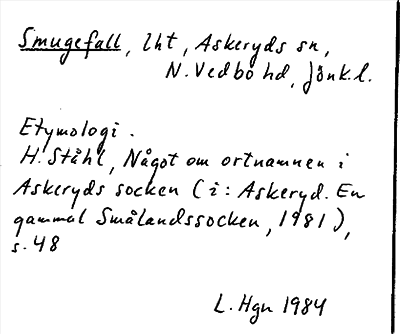 Smugefall, lht, Askeryds sn,
N. Vedbo hd, Jönk.l.
Etymologi.
H. Ståhl, Något om ortnamnen i
Askeryds socken (i: Askeryd. En
gammal Smålandssocken, 1981),
s. 48
L. Hgn 1984